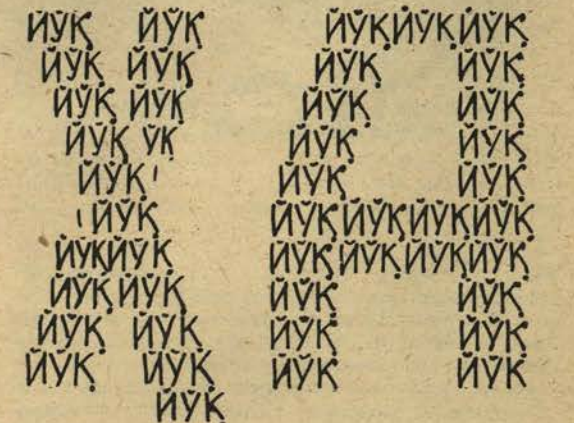 ЙЎҚ ЙЎҚ ЙЎҚ ЙЎҚ ЙЎҚ
ЙЎҚ ЙЎҚ ЙЎҚ ЙЎҚ
ЙЎҚ ЙЎҚ ЙЎҚ ЙЎҚ
ЙЎҚ ЎҚ ЙЎҚ ЙЎҚ
ЙЎҚ ЙЎҚ ЙЎҚ
ЙЎҚ ЙЎҚ ЙЎҚ ЙЎҚ ЙЎҚ
ЙЎҚ ЙЎҚ ЙЎҚ ЙЎҚ ЙЎҚ ЙЎҚ
ЙЎҚ ЙЎҚ ЙЎҚ ЙЎҚ
ЙЎҚ ЙЎҚ ЙЎҚ ЙЎҚ
ЙЎҚ ЙЎҚ ЙЎҚ ЙЎҚ
ЙЎҚ